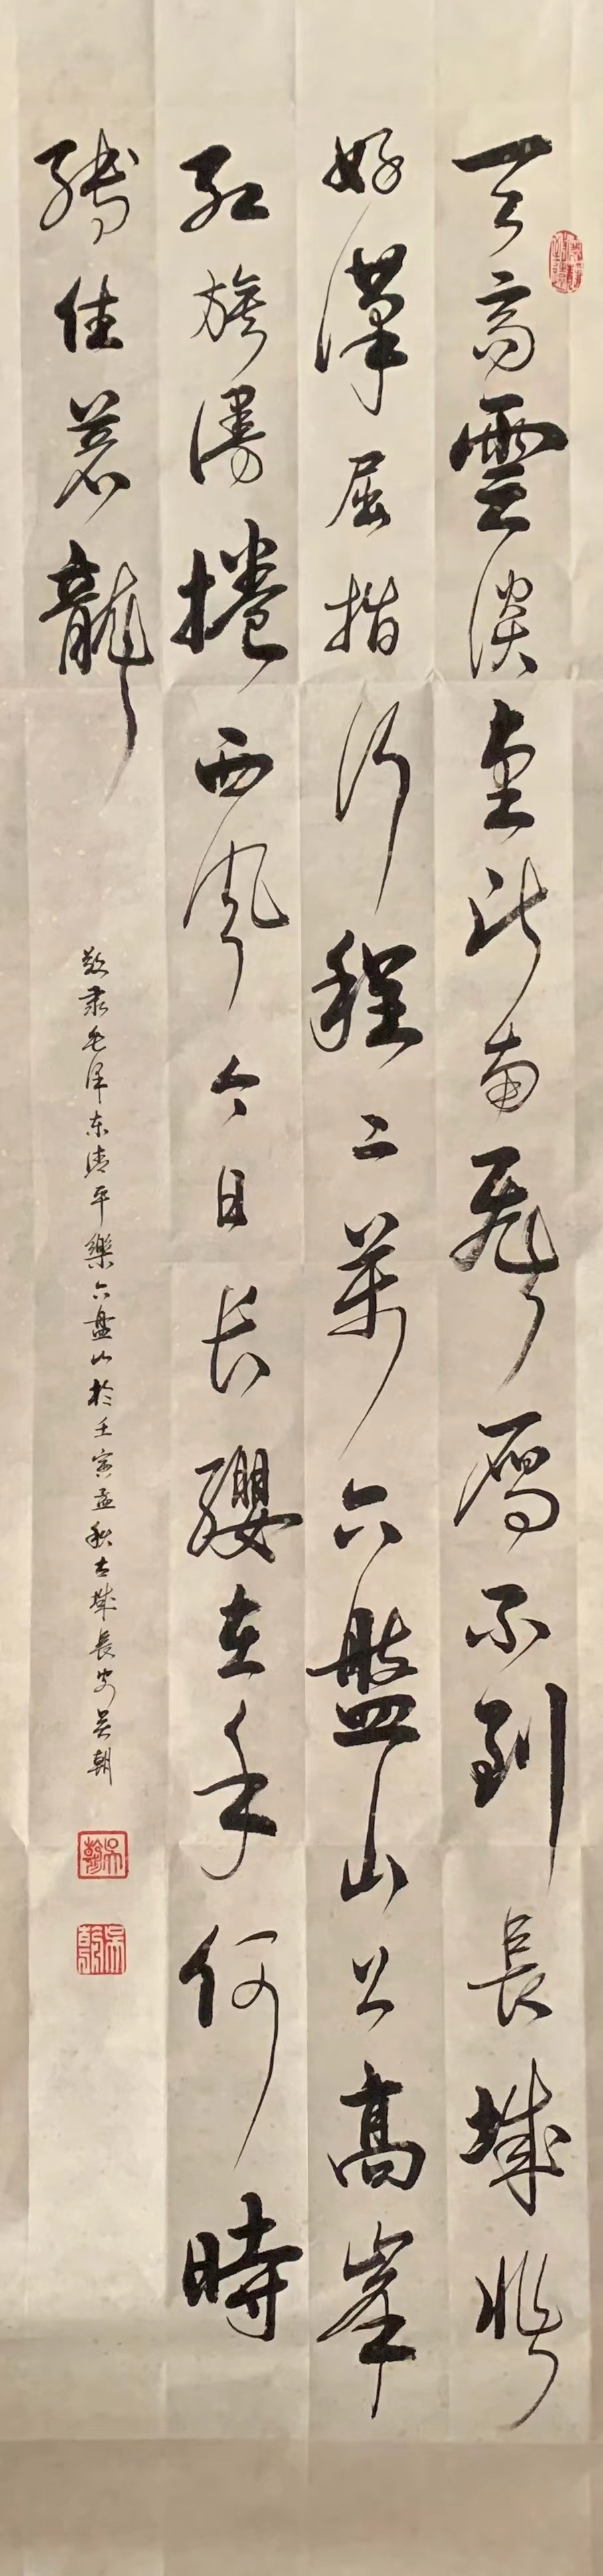 天高雲淡望断南飛雁不到長城非
好漢屈指行程二萬六盤山上高峯
紅旗漫捲西风今日长纓在手何時
縛住蒼龍
敬录毛泽东清平樂六盤山於壬寅孟秋古城長安吴朝